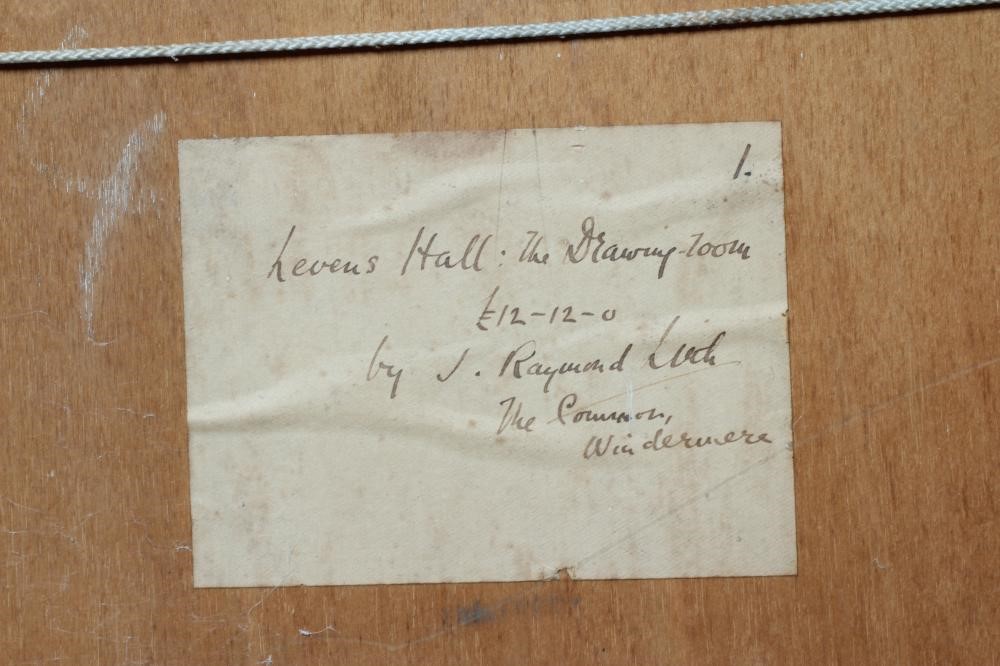 1.
Levens Hall: The Drawing-room
£12-12-0
by J. Raymond
The Common,
Windermere